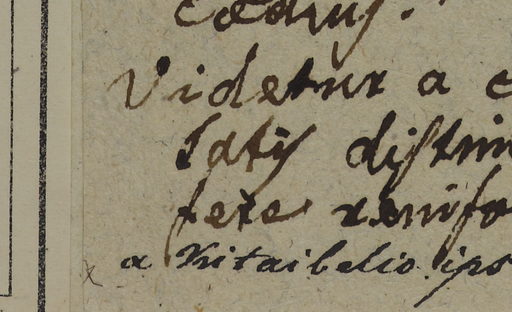 Videtur a
satis distin
fere renifo
a Kitaibelio ips